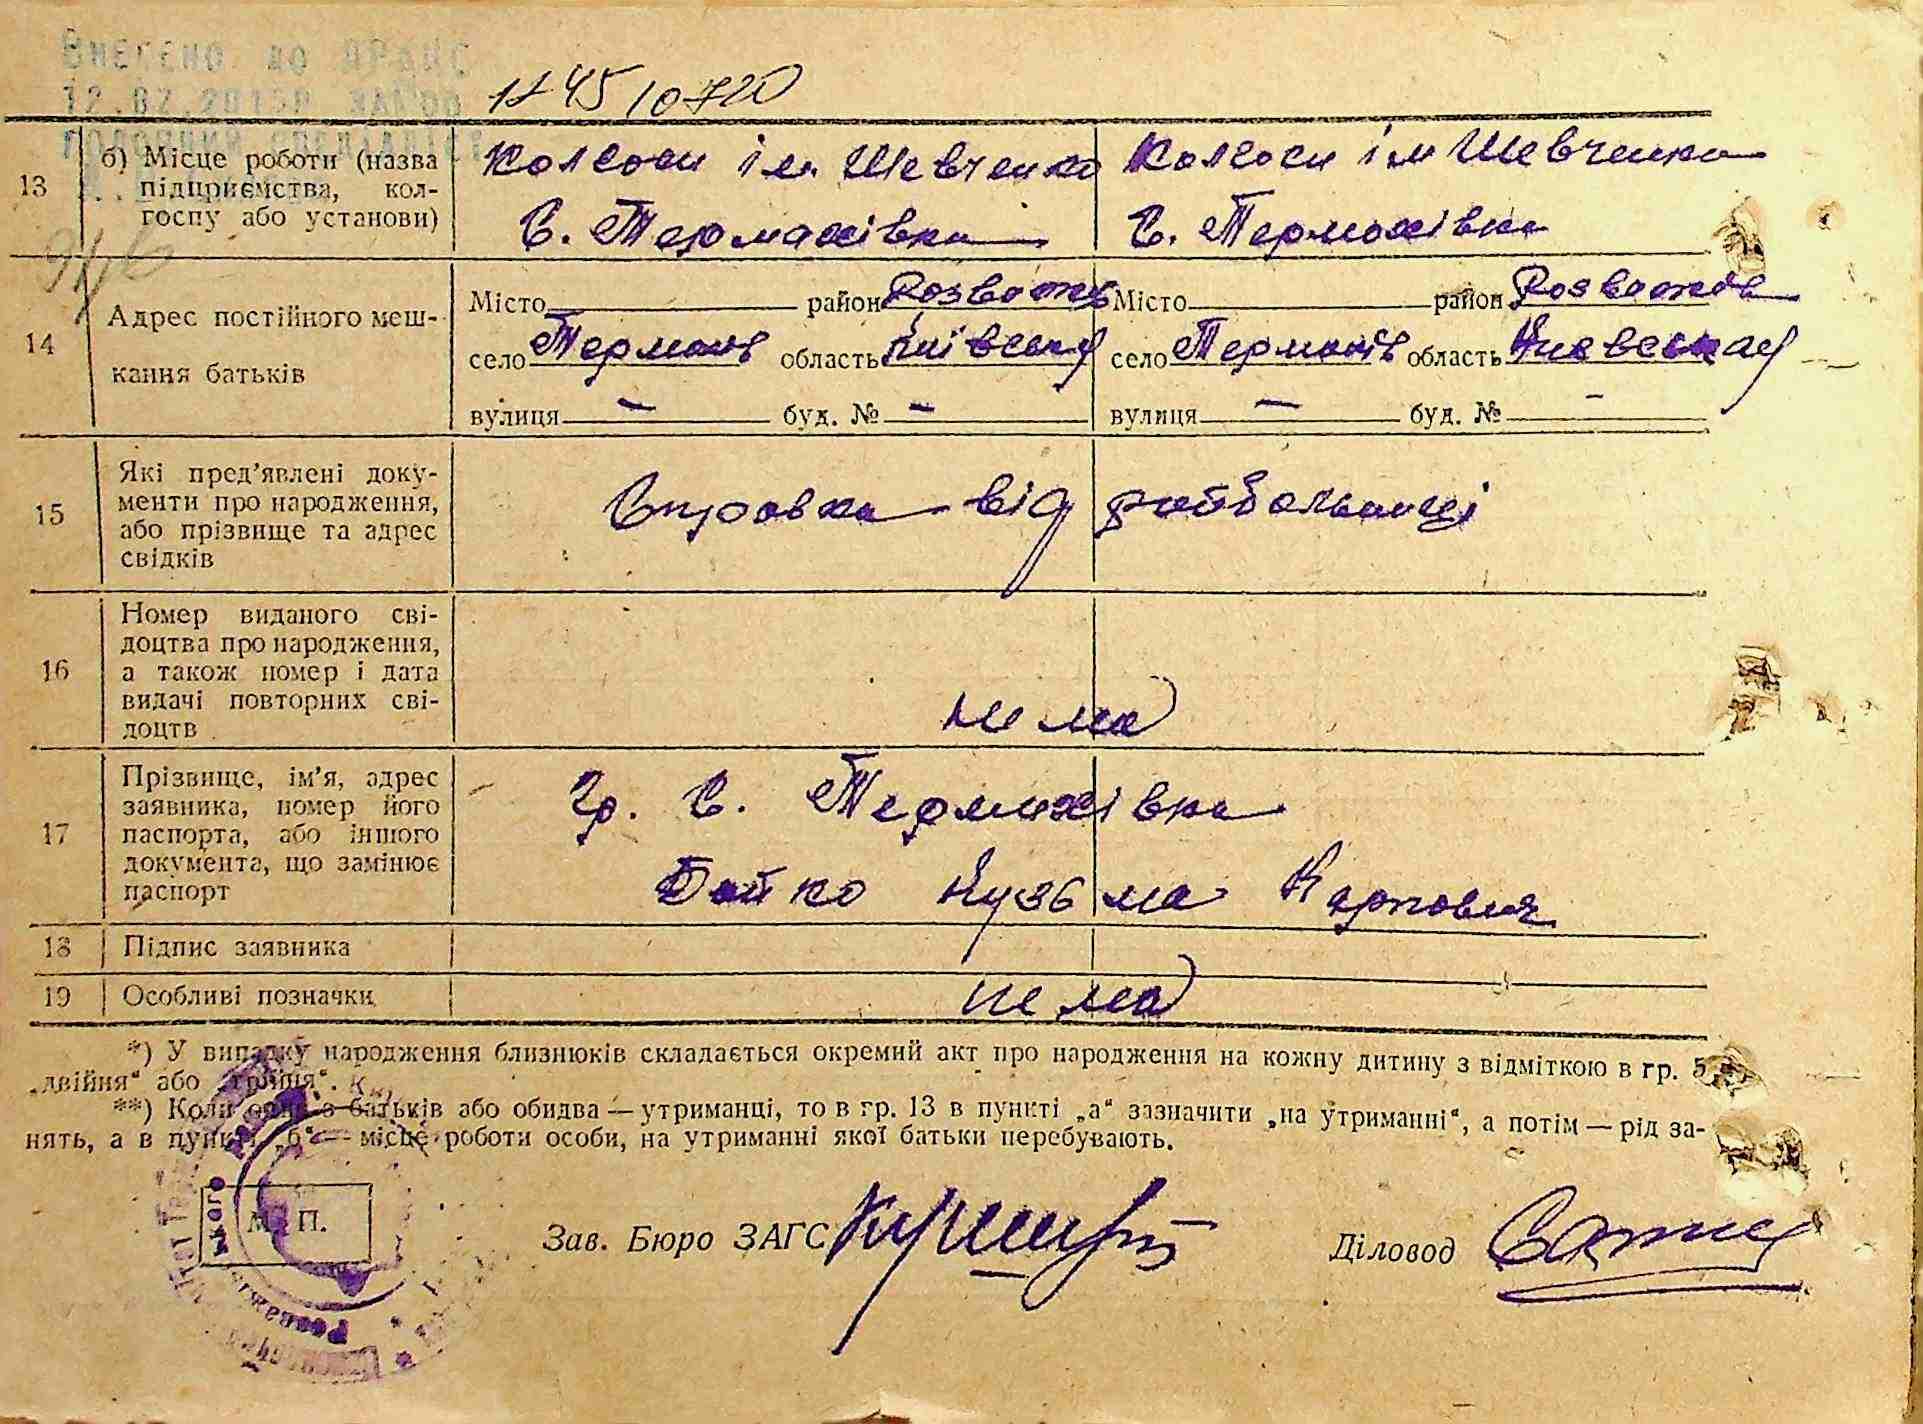 Внесено до ДРАЦС
1845 10720
13
б) Місце роботи (назва
підприємства, кол-
госпу або установи)
Колгосп ім. Шевченко
Колгосп ім Шевченка
С. Термахівка
С. Термахівка
14
Адрес постійного меш-
кання батьків
Місто район Розважів Місто район Розважів
село Термахів область Київська село Термахів область Киевская
вулиця — буд. № — вулиця — буд. № -
15
Які пред’явлені доку-
менти про народження,
або прізвище та адрес
свідків
Справка від райбольниці
16
Номер виданого сві-
доцтва про народження,
а також номер і дата
видачі повторних сві-
доцтв
нема
17
Прізвище, ім’я, адрес
заявника, номер його
паспорта, або іншого
документа, що замінює
паспорт
Гр. С. Термахівка
Бойко Кузьма Карпович
18 Підпис заявника
19 Особливі позначки
нема
*) У випадку народження близнюків складається окремий акт про народження на кожну дитину з відміткою в гр. 5
„двійня“ або „трійня“.
**) Коли один з батьків або обидва — утриманці, то в гр. 13 в пункті „а“ зазначити „на утриманні“, а потім — рід за-
нять, а в пункті „б“ — місце роботи особи, на утриманні якої батьки перебувають.
М. П.
Зав. Бюро ЗАГС
Діловод